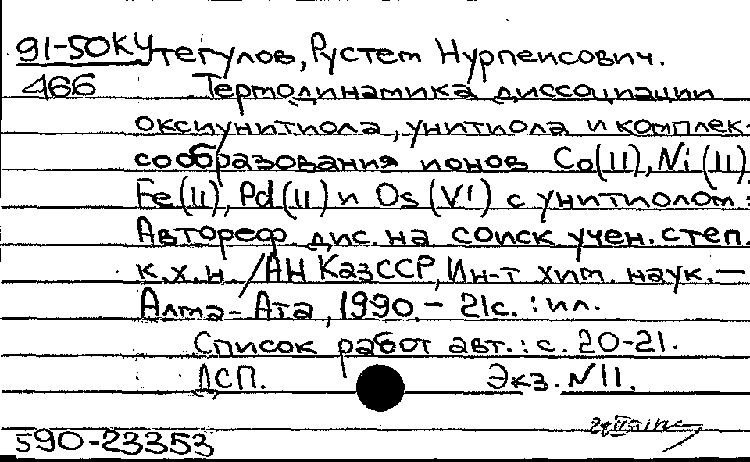 91-50КУтегулов, Рустем Нурпеисович.
466 Термодинамика диссоциации
оксиунитиола, унитиола и комплек-
сообразования ионов Co(II), Ni(II),
Fe(II), Pd(II) и Os(VI) с унитиолом:
Автореф дис. на соиск учен. степ.
к.х.н. /АН КазССР, Ин-т хим. наук. —
Алма-Ата, 1990. – 21с. : ил.
Список работ авт.: с. 20-21.
ДСП. Экз. N11.
590-23353